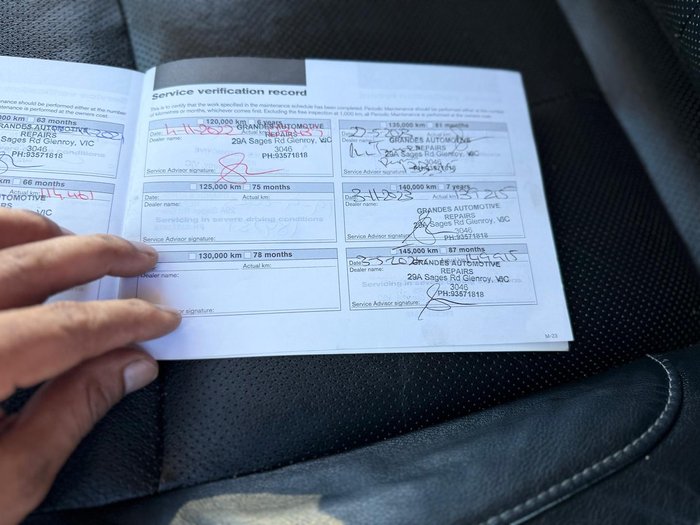 Service verification record
This is to certify that the work specified in the maintenance schedule has been completed. Periodic Maintenance should be performed either at the number
of kilometres or months, whichever comes first. Excluding the free inspection at 1,000 km, all Periodic Maintenance is performed at the owners cost.
ntenance should be performed either at the number
intenance is performed at the owners cost.
000 km 63 months
GRANDES AUTOMOTIVE
REPAIRS
29A Sages Rd Glenroy, VIC
3046
PH:93571818
66 months
Actual km:
114461
TOMOTIVE
120,000 km 6 years
Date: 4-11-2022 Actual km:
GRANDES AUTOMOTIVE
REPAIRS
29A Sages Rd Glenroy, VIC
3046
PH:93571818
Service Advisor signature:
125,000 km 75 months
Date: Actual km:
Dealer name:
Servicing in severe driving conditions
Service Advisor signature:
130,000 km 78 months
Actual km:
Dealer name:
signature:
135,000 km 81 months
22-5-2023
GRANDES AUTOMOTIVE
REPAIRS
29A Sages Rd Glenroy, VIC
140,000 km 7 years
3-11-2023 Actual km: 139215
Dealer name:
GRANDES AUTOMOTIVE
REPAIRS
29A Sages Rd Glenroy, VIC
3046
PH:93571818
Service Advisor signature:
145,000 km 87 months
Date: Actual km: 144915
Dealer name:
GRANDES AUTOMOTIVE
REPAIRS
29A Sages Rd Glenroy, VIC
3046
PH:93571818
Service Advisor signature:
M-23